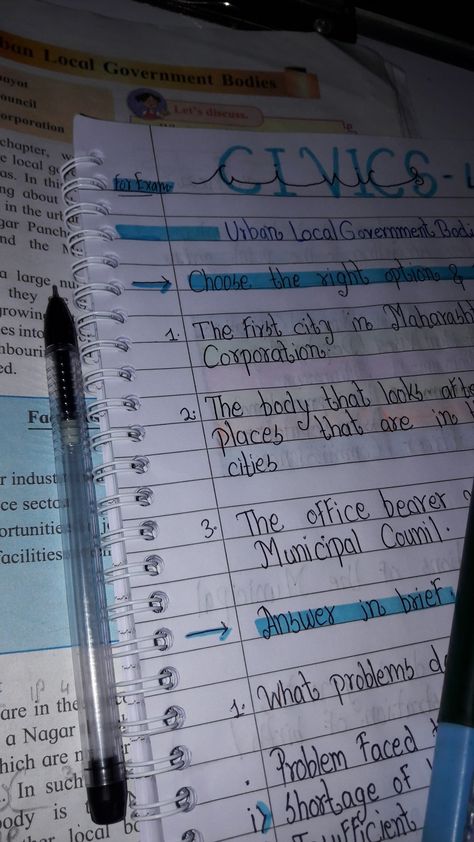 ban Local Government Bodies
ayat
ouncil
orporation
Let's discuss.
chapter, w
e local g
as. In thi
ng about
in the urb
gar Panch
nd the M
a large nu
they
growing
es into
nbouri
ed.
Fac
r indust
ce secto
ortunitie
facilities
are in the
a Nagar
hich are n
In such
ody is
local bo
For Exam
CIVICS-
Urban Local Government Bodi
→ Choose the right option &
1. The first city in Maharasht
Corporation.
2. The body that looks afte
places that are in
cities
3. The office bearer
Municipal Council.
→ Answer in brief
1. What problems d
Problem Faced
i) Shortage of
Insufficient